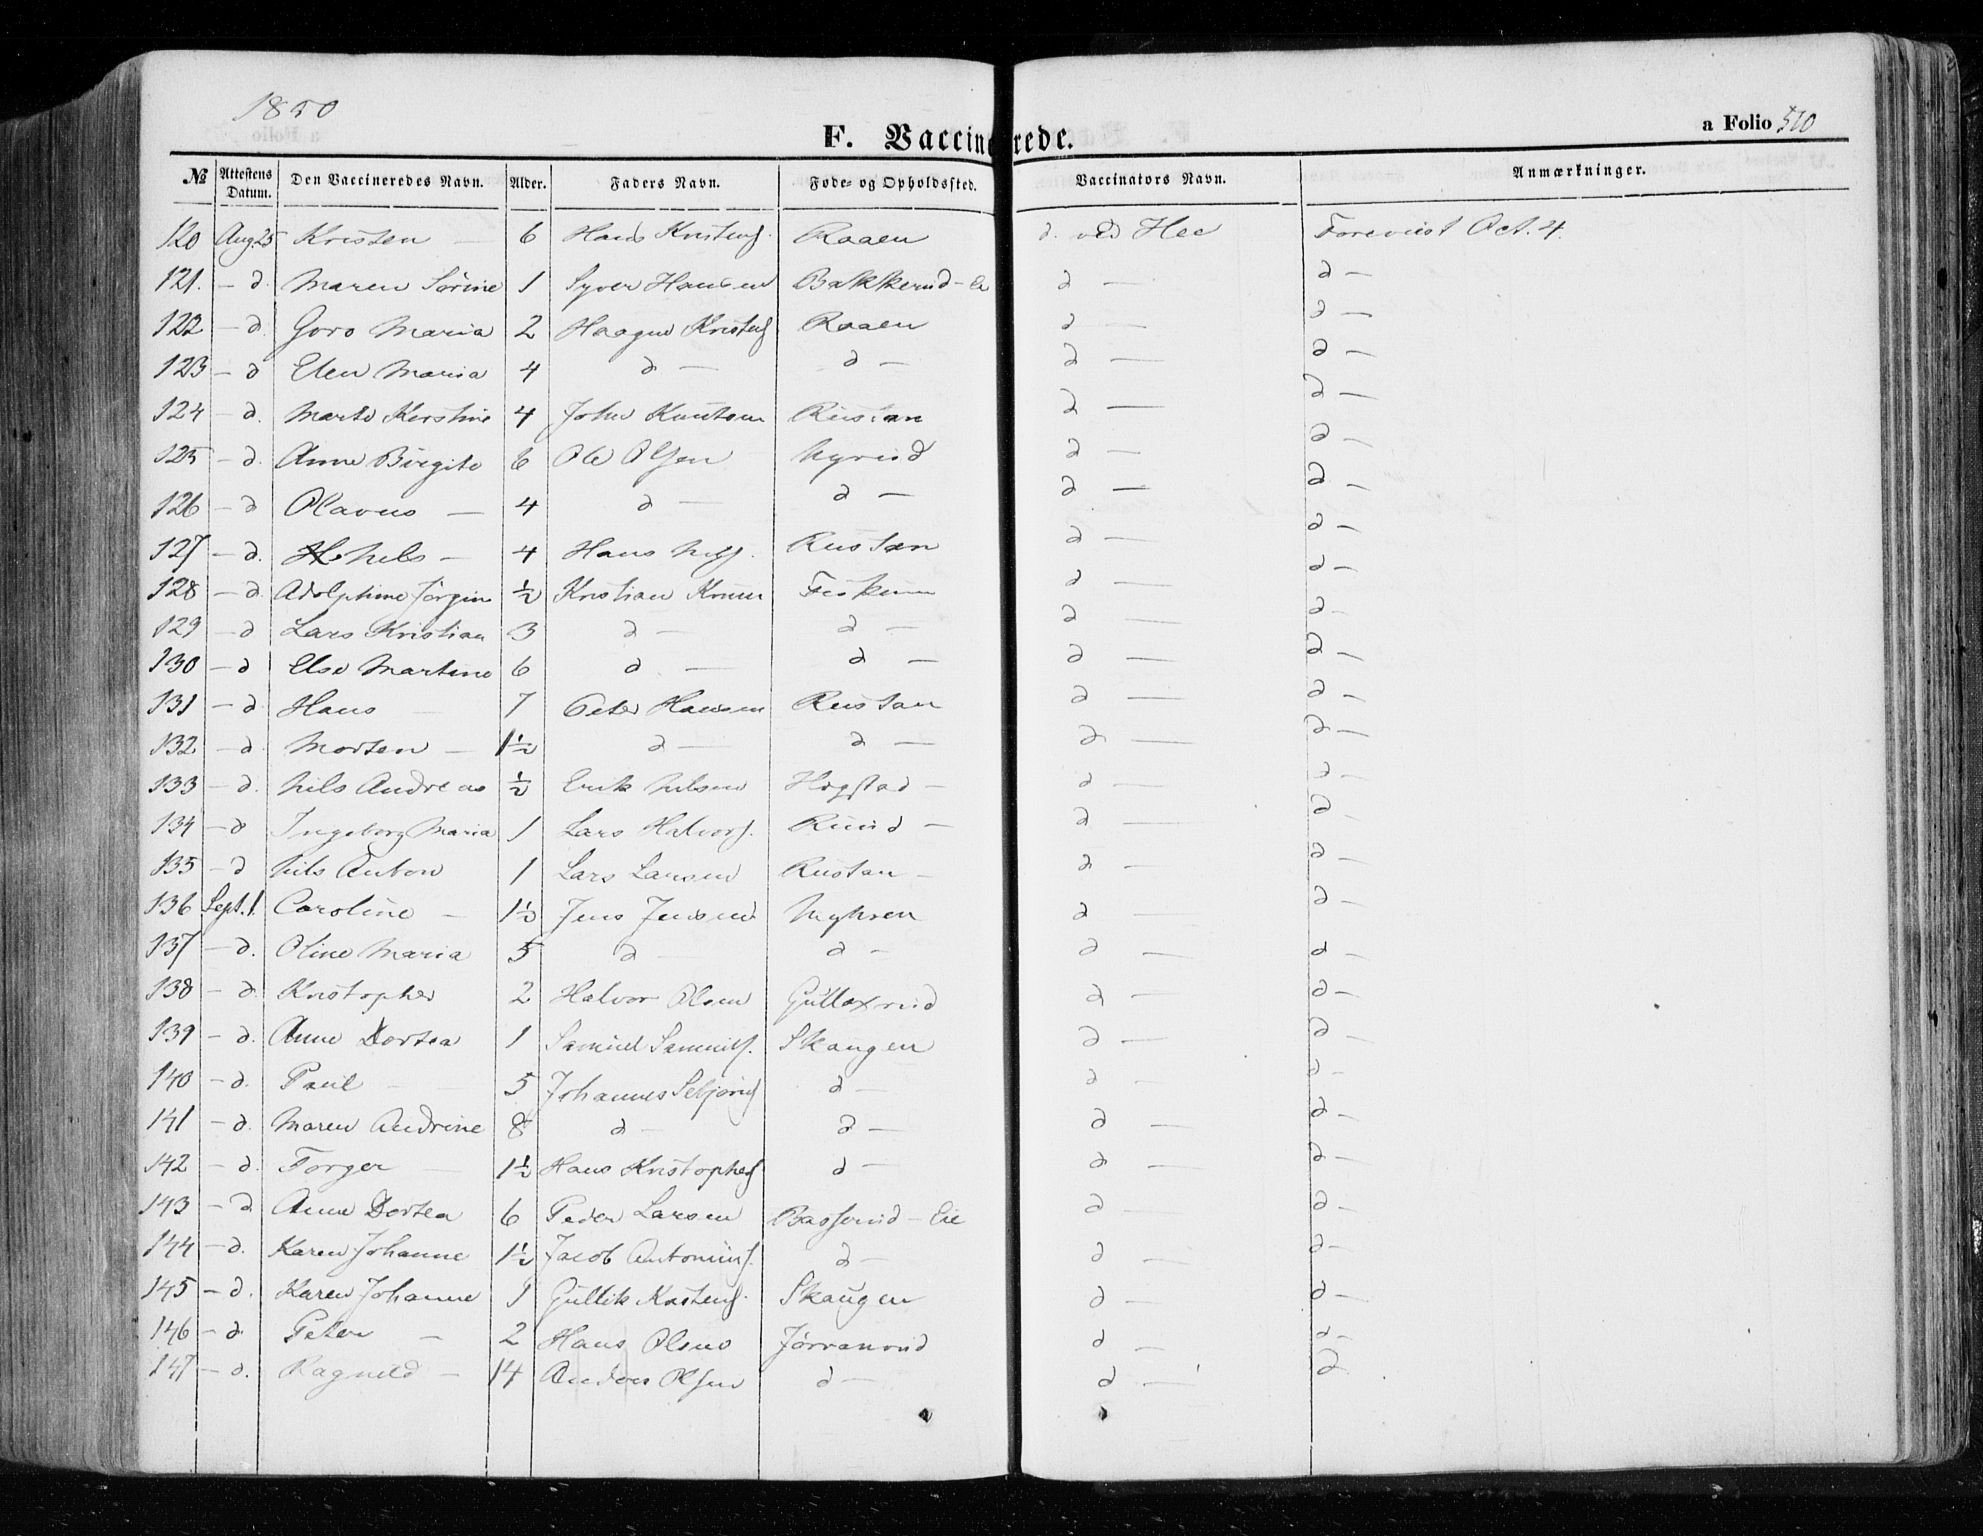 1850
F. Vaccinerede.
a Folio 510
№ Attestens Datum. Den Vaccineredes Navn. Alder. Faders Navn. Føde- og Opholdssted. Vaccinators Navn. Anmærkninger.
120 Aug. 25 Kristen — 6 Hans Kristens. Raaen d. ved Hee Foreviist Oct. 4.
121. — d. Maren Sørine 1 Syver Hansen Bakkerud - Ei d — d —
122 — d. Goro Maria 2 Haagen Kristens Raaen d — d —
123 — d Elen Maria 4 d — d — d — d —
124 — d. Marte Kerstine 4 John Knutsen Rustan d — d —
125 — d. Anne Birgite 6 Ole Olsen Myrud d — d —
126 — d Olavus — 4 d — d — d — d —
127 — d. Nils — 4 Hans Nils. Rustan d — d —
128 — d. Adolphine Jørgine ½ Kristian Fiskum d — d —
129 — d Lars Kristian 3 d — d — d — d —
130 — d Else Martine 6 d — d — d — d —
131 — d Hans — 7 Peter Hansen Rustan d — d —
132 — d Morten — 1½ d — d — d — d —
133 — d. Nils Andreas ½ Erik Nilsen Hogstad — d — d —
134 — d Ingeborg Maria 1 Lars Halvors. Ruud — d — d —
135 — d Nils Anton 1 Lars Larsen Rustan — d — d —
136 Sept. 1. Caroline — 1½ Jens Jensen Myhren d — d —
137 — d. Oline Maria 5 d — d — d — d —
138 — d. Kristopher 2 Halvor Olsen Gulloxrud d — d —
139 — d. Anne Dortea 1 Samuel Samuels. Skaugen d — d —
140 — d. Paul — 5 Johannes d — d — d —
141 — d. Maren Andrine 8 d — d — d — d —
142 — d. Torger — 1½ Hans Kristophers d — d — d —
143 — d Anne Dortea 6 Peder Larsen Basserud - Eie d — d —
144 — d. Karen Johanne 1½ Jacob Antonius. d — d — d —
145 — d. Karen Johanne 1 Gullik Kristens. Skaugen d — d —
146 — d. Peter — 2 Hans Olsen Jørranrud d — d —
147 — d. Ragnild — 14 Anders Olsen d — d — d